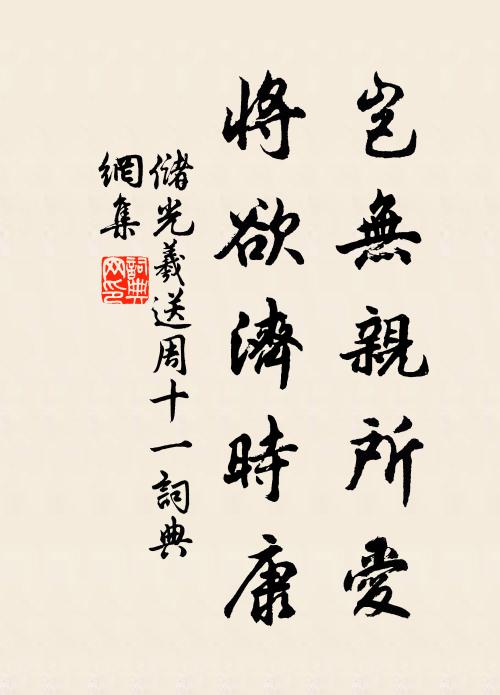 豈無親所愛
將欲濟時康
儲光羲送周十一詞典
網集
詞典
網印